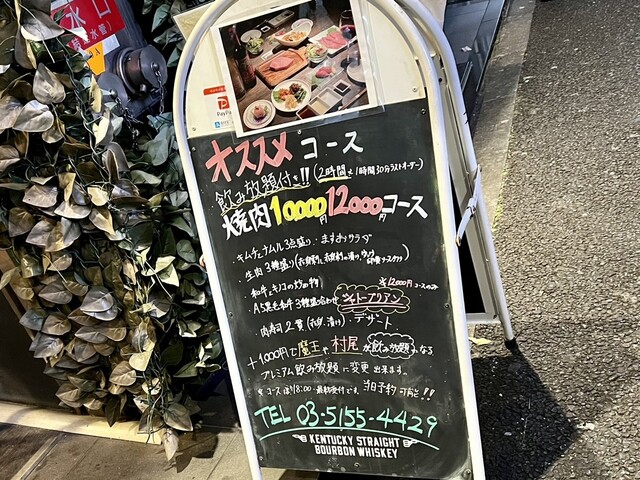 水口
PayPay
オススメ コース
飲み放題付き!! (2時間 1時間30分ラストオーダー)
焼肉10000円12000円コース
・キムチとナムル3点盛り・ますおサラダ
・生肉3種盛り
・和牛とキノコの炒め物
※12000円コースのみ
・A5黒毛和牛3種盛り合わせ シャトーブリアン
・肉寿司2貫 ・デザート
+1000円で魔王や村尾が飲み放題になる
プレミアム飲み放題に変更出来ます。
※コースは18:00 最終受付です。当日予約可能!!
TEL 03-5155-4429
KENTUCKY STRAIGHT
BOURBON WHISKEY